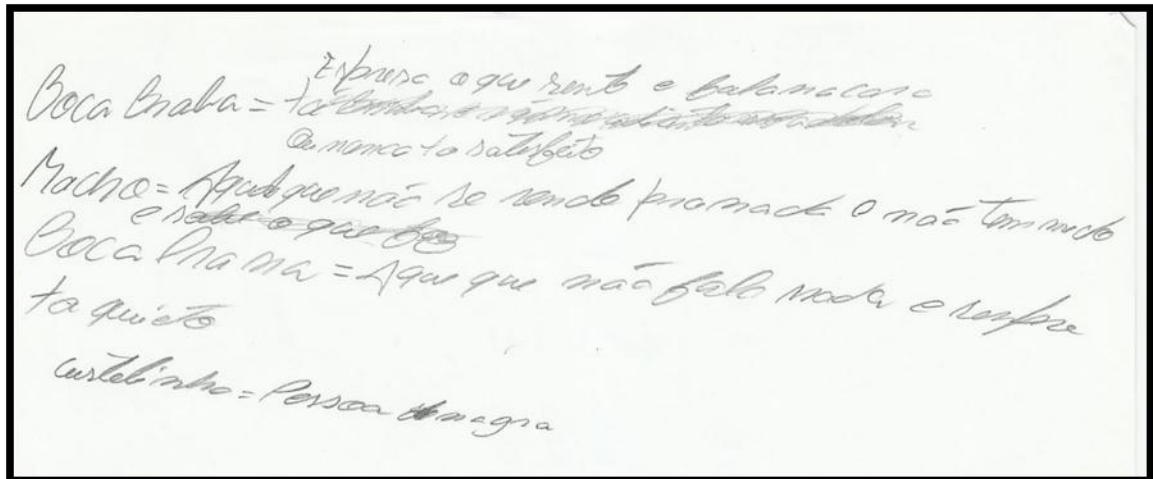 Expresa o que sente e fala na cara
Boca Braba = ta
Ou nunca to satisfeito
Macho = Aquele que não se rende pra nada e não tem medo
e sabe o que faz
Boca mansa = Aque que não fala nada e senpre
ta quieto
custelinha = Pessoa magra